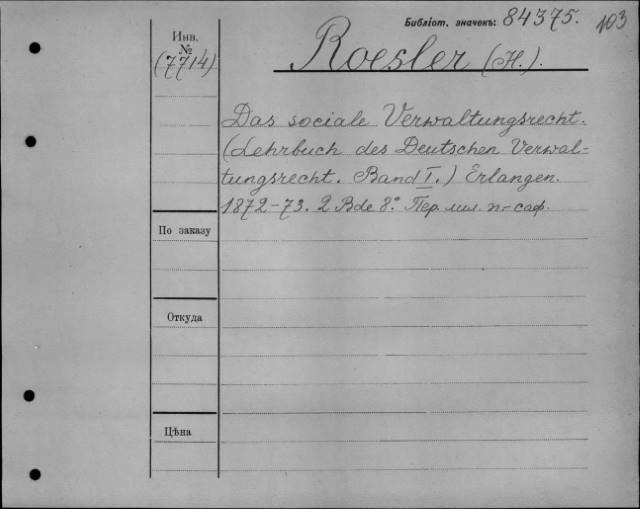 Библіот. значекъ: 84375. 103
Инв.
№
(7714)
Roesler (H.).
Das sociale Verwaltungsrecht.
(Lehrbuch des Deutschen Verwal-
tungsrecht. Band I.) Erlangen.
1872-73. 2 Bde 8.° Пер. мил. п.-саф.
По заказу
Откуда
Цѣна